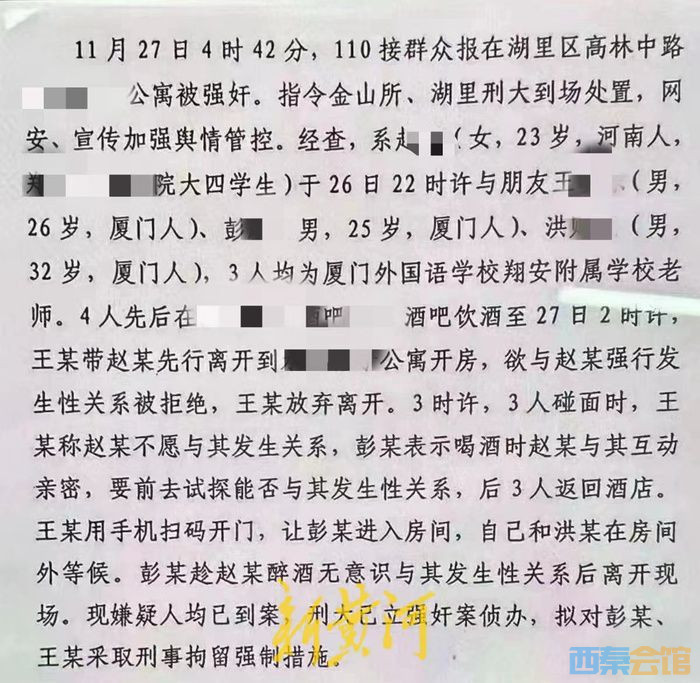 11月27日4时42分，110接群众报在湖里区高林中路
公寓被强奸。指令金山所、湖里刑大到场处置，网
安、宣传加强舆情管控。经查，系赵（女，23岁，河南人，
院大四学生）于26日22时许与朋友王（男，
26岁，厦门人）、彭 男，25岁，厦门人）、洪（男，
32岁，厦门人），3人均为厦门外国语学校翔安附属学校老
师。4人先后在酒吧饮酒至27日2时许，
王某带赵某先行离开到公寓开房，欲与赵某强行发
生性关系被拒绝，王某放弃离开。3时许，3人碰面时，王
某称赵某不愿与其发生关系，彭某表示喝酒时赵某与其互动
亲密，要前去试探能否与其发生性关系，后3人返回酒店。
王某用手机扫码开门，让彭某进入房间，自己和洪某在房间
外等候。彭某趁赵某醉酒无意识与其发生性关系后离开现
场。现嫌疑人均已到案，刑大已立强奸案侦办，拟对彭某、
王某采取刑事拘留强制措施。
新黄河
西秦会馆